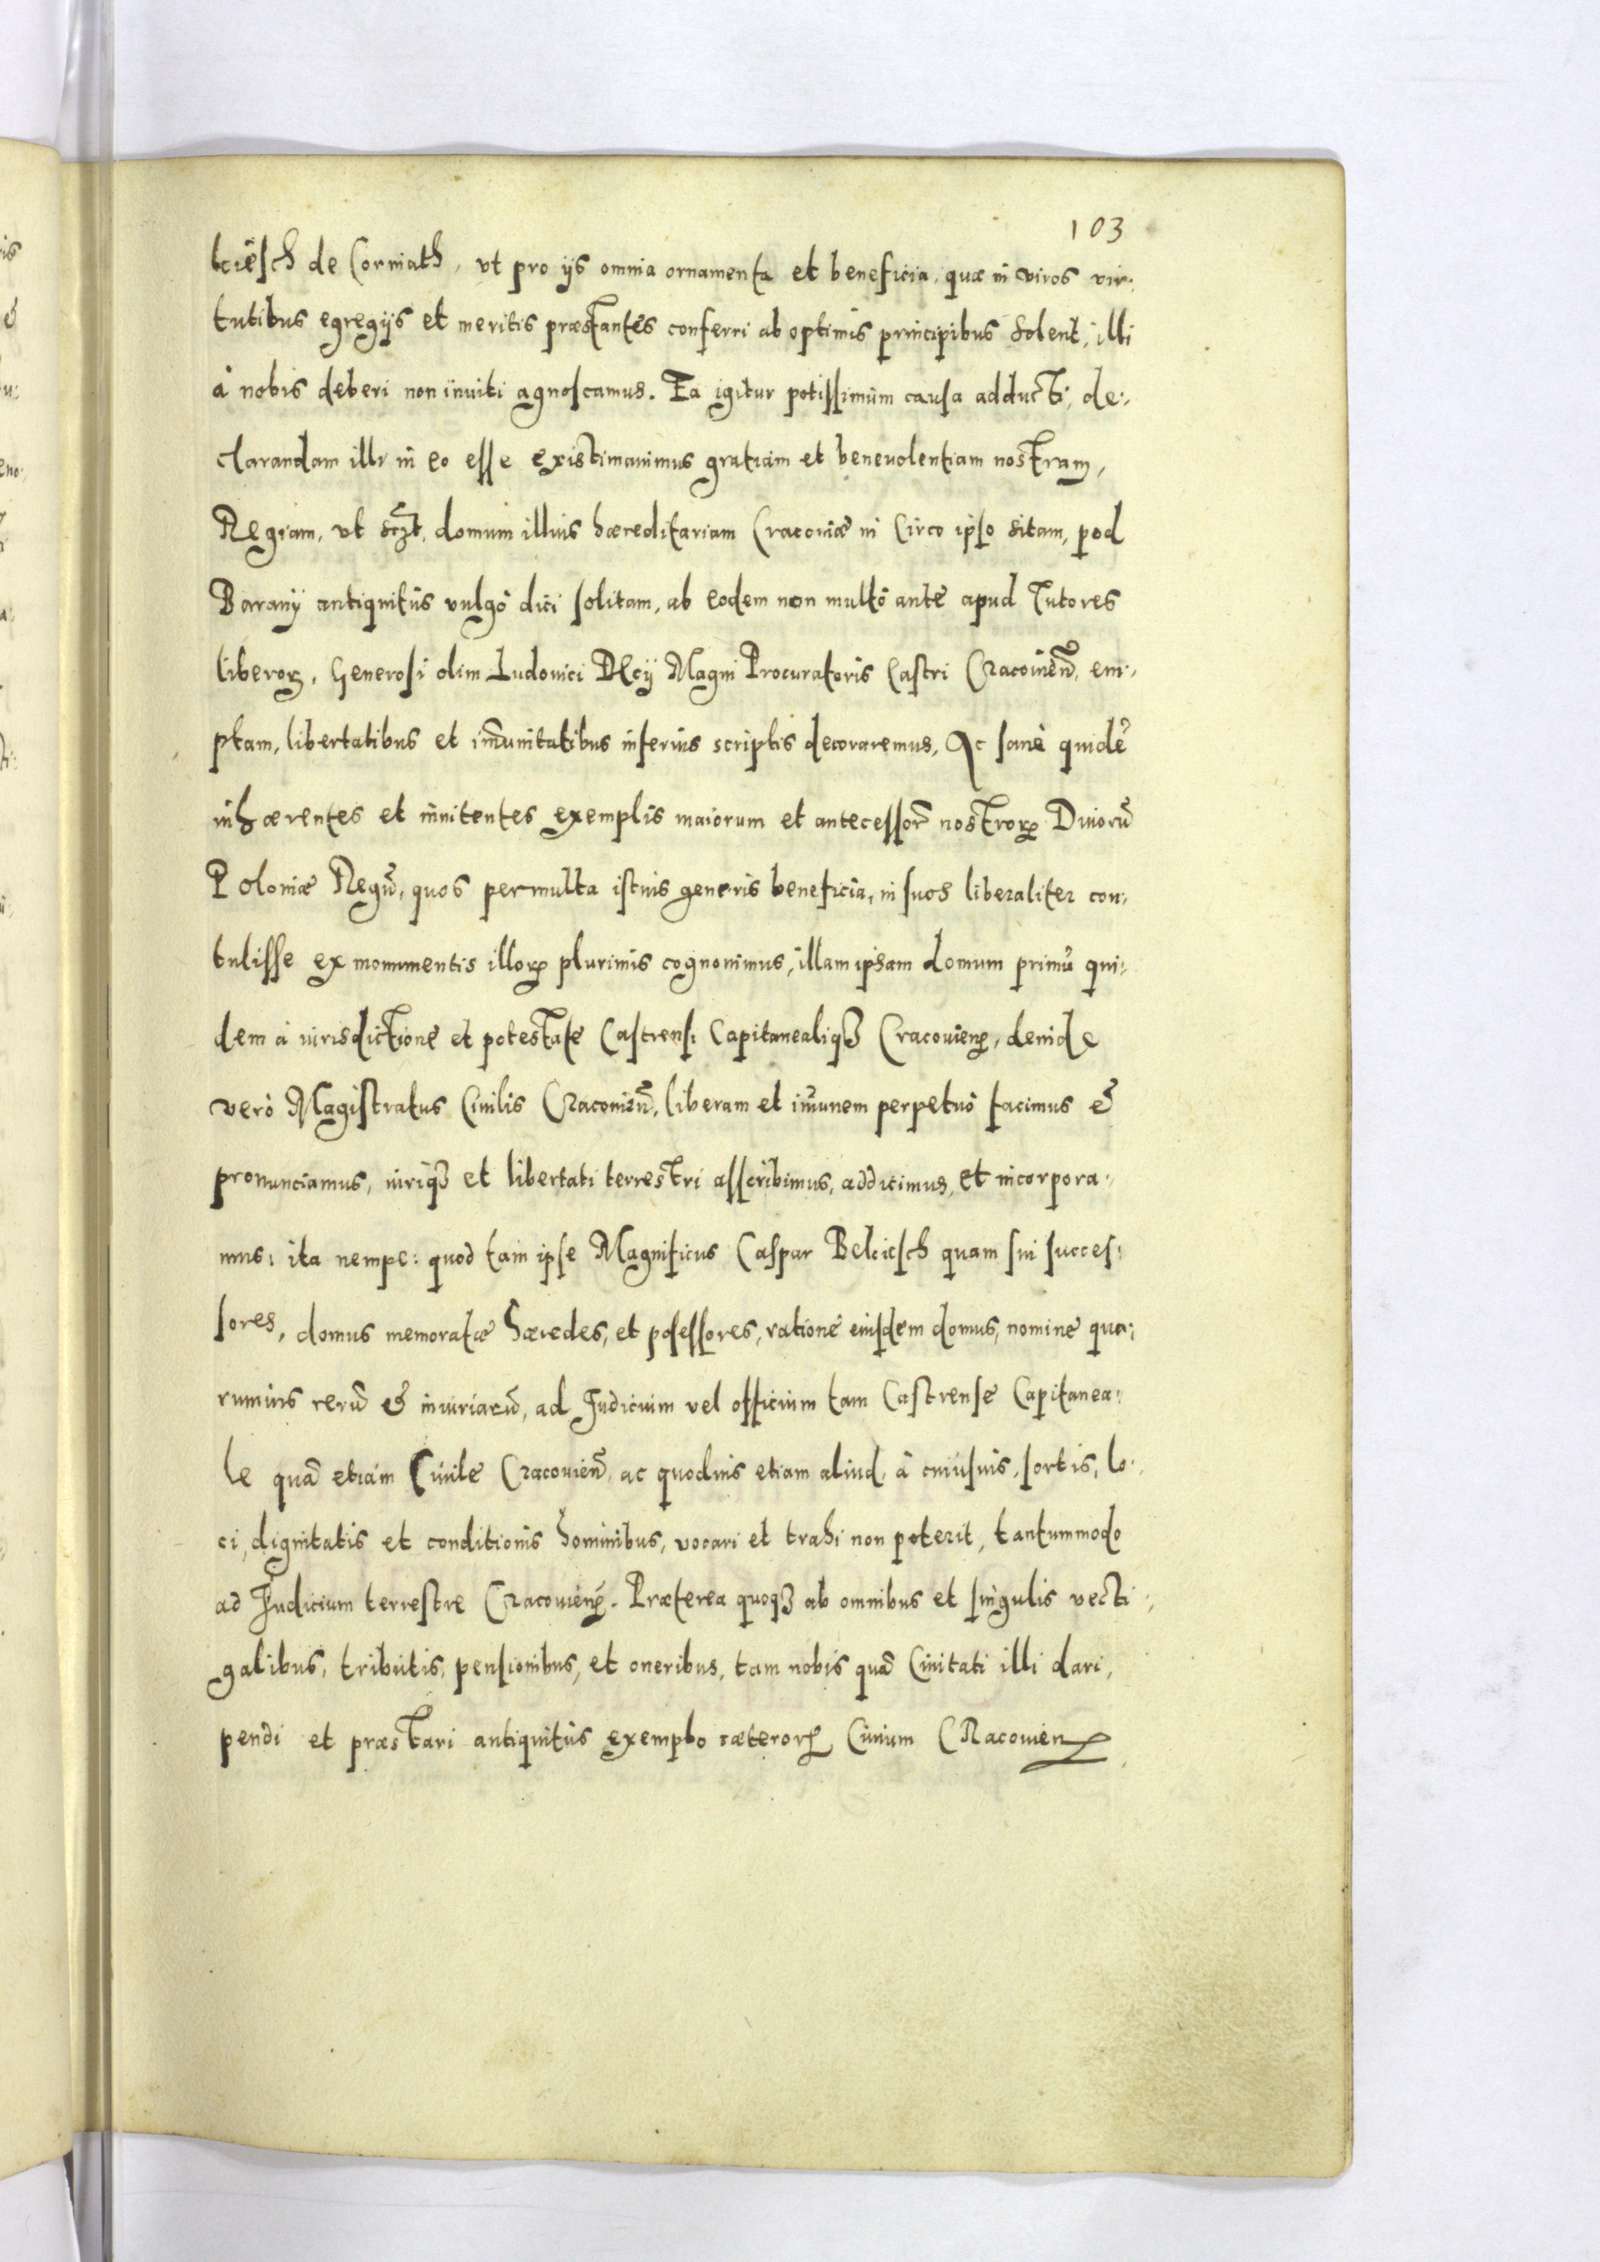 103
lciesch de Corniath, ut pro ijs omnia ornamenta et beneficia, quæ in viros vir-
tutibus egregijs et meritis præstantes conferri ab optimis principibus solent, illi
à nobis deberi non inviti agnoscamus. Ea igitur potissimùm causa adducti, de-
clarandam illi in eo esse existimavimus gratiam et benevolentiam nostram,
Regiam, ut sczt, domum illius hæreditariam Cracoviæ in Circo ipso sitam, pod
Barany antiquitùs vulgò dici solitam, ab eodem non multò ante apud Tutores
liberoꝝ, Generosi olim Ludovici Decij Magni Procuratoris Castri Cracovień, em-
ptam, libertatibus et im̃unitatibus inferius scriptis decoraremus, Ac sanè quidẽ
inhærentes et innitentes exemplis maiorum et antecessor̃ nostroꝝ Divorũ
Poloniæ Regũ, quos permulta istius generis beneficia, in suos liberaliter con-
tulisse ex monumentis illoꝝ plurimis cognovimus, illam ipsam domum primũ qui-
dem à iurisdictione et potestate Castrensi Capitanealiqꝫ Cracovieñ, deinde
verò Magistratus Civilis Cracovieñ, liberam et im̃unem perpetuò facimus &
pronunciamus, iuriqꝫ et libertati terrestri asscribimus, addicimus, et incorpora-
mus: ita nempe: quod tam ipse Magnificus Caspar Belciesch quam sui succes-
sores, domus memoratæ hæredes, et posessores, ratione eiusdem domus, nomine qua-
rumvis rerũ & iniuriarũ, ad Iudicium vel officium tam Castrense Capitanea-
le quã etiam Civile Cracovieñ, ac quodvis etiam aliud, à cuiusvis, sortis, lo-
ci, dignitatis et conditionis hominibus, vocari et trahi non poterit, tantummodo
ad Iudicium terrestre Cracovieñ. Præterea quoqꝫ ab omnibus et singulis vecti-
galibus, tributis, pensionibus, et oneribus, tam nobis quã Civitati illi dari,
pendi et præstari antiquitùs exemplo cæteroꝝ Civium Cracovieñ